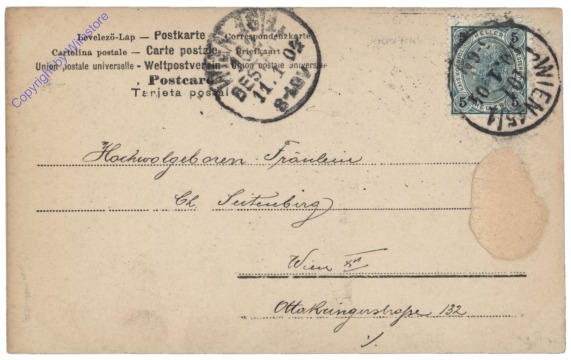 Levelező-Lap — Postkarte — Correspondenzkarte
Cartolina postale — Carte postale — Briefkaart
Union postale universelle - Weltpostverein - Union postale universelle
Postcard
Tarjeta postal
BEST
11.1.04
8-9½V
5 HELLER 5
5 5
WIEN 45/1
Copyright by Winstore
Hochwolgeboren Fräulein
Ch. Seitenberg
Wien
Ottakringerstraße 132